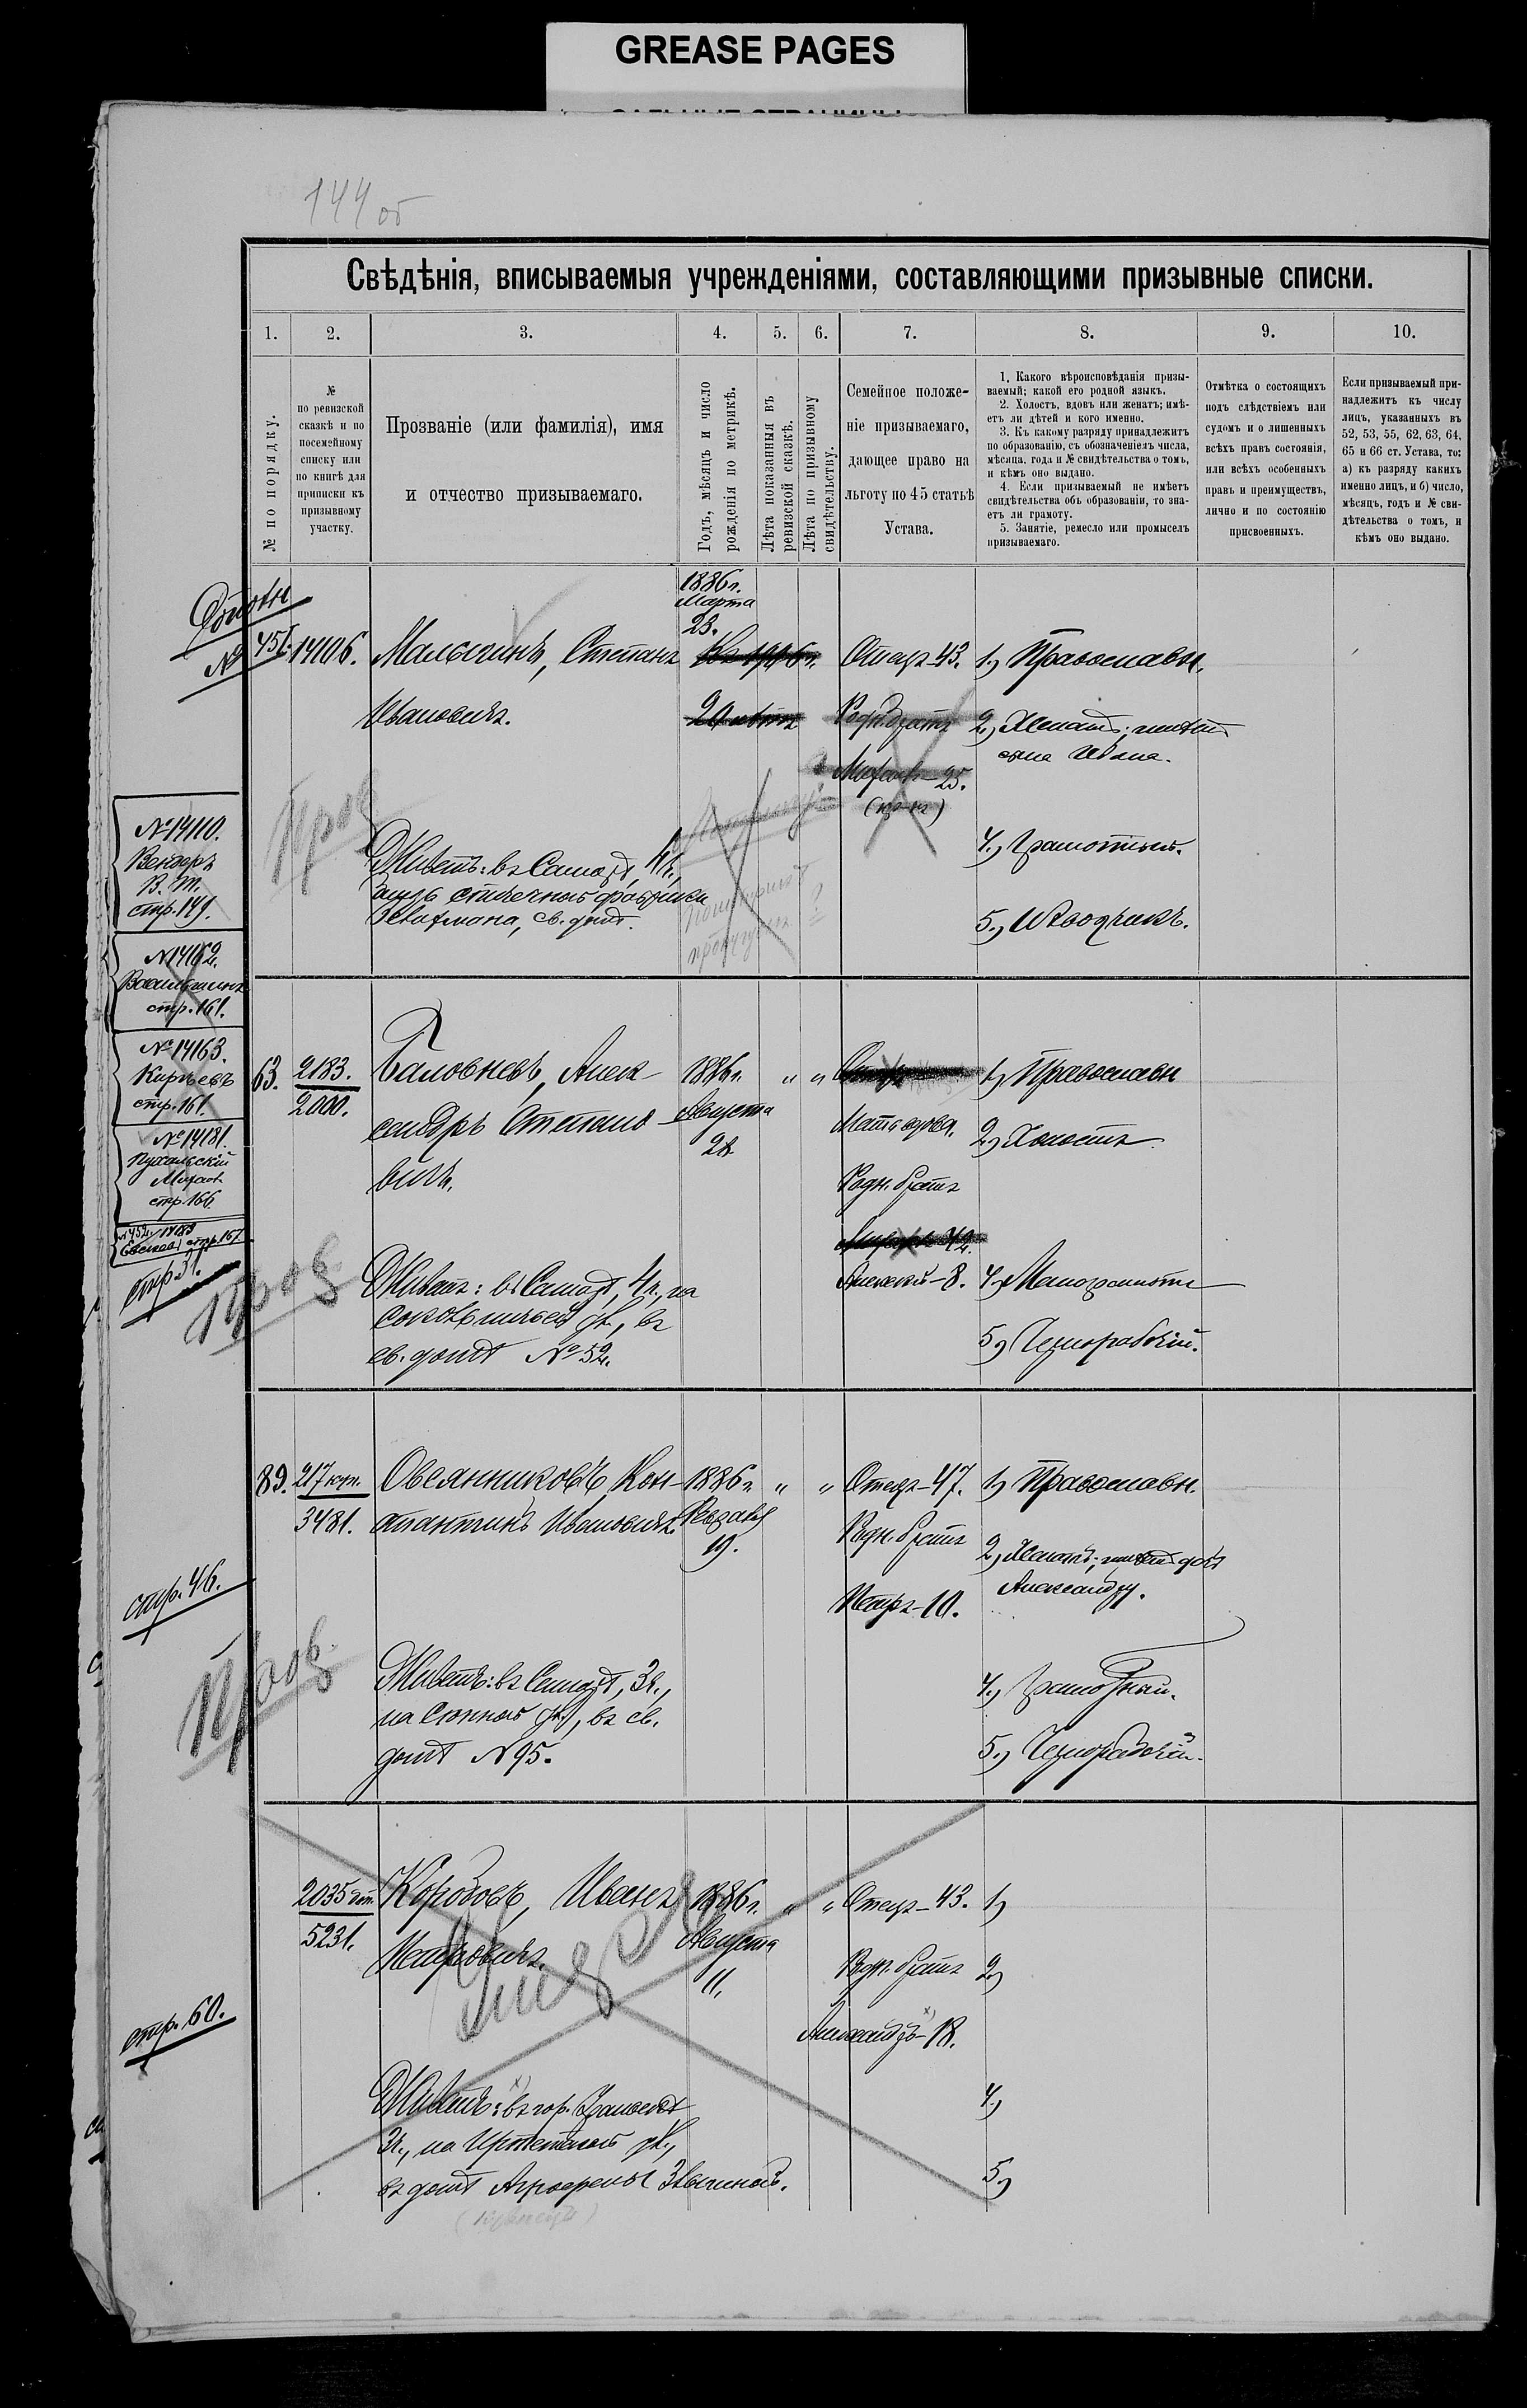 GREASE PAGES
144 об
Свѣдѣнія, вписываемыя учрежденіями, составляющими призывные списки.
1. 2. 3. 4. 5. 6. 7. 8. 9. 10.
№ по порядку.
№
по ревизской
сказкѣ и по
посемейному
списку или
по книгѣ для
приписки къ
призывному
участку.
Прозваніе (или фамилія), имя
и отчество призываемаго.
Годъ, мѣсяцъ и число
рожденія по метрикѣ.
Лѣта показанныя въ
ревизской сказкѣ.
Лѣта по призывному
свидѣтельству.
Семейное положе-
ніе призываемаго,
дающее право на
льготу по 45 статьѣ
Устава.
1. Какого вѣроисповѣданія призы-
ваемый; какой его родной языкъ.
2. Холостъ, вдовъ или женатъ; имѣ-
етъ ли дѣтей и кого именно.
3. Къ какому разряду принадлежитъ
по образованію, съ обозначеніемъ числа,
мѣсяца, года и № свидѣтельства о томъ,
и кѣмъ оно выдано.
4. Если призываемый не имѣетъ
свидѣтельства объ образованіи, то зна-
етъ ли грамоту.
5. Занятіе, ремесло или промыселъ
призываемаго.
Отмѣтка о состоящихъ
подъ слѣдствіемъ или
судомъ и о лишенныхъ
всѣхъ правъ состоянія,
или всѣхъ особенныхъ
правъ и преимуществъ,
лично и по состоянію
присвоенныхъ.
Если призываемый при-
надлежитъ къ числу
лицъ, указанныхъ въ
52, 53, 55, 62, 63, 64,
65 и 66 ст. Устава, то:
а) къ разряду какихъ
именно лицъ, и б) число,
мѣсяцъ, годъ и № сви-
дѣтельства о томъ, и
кѣмъ оно выдано.
№ 451. 14106.
Малыгинъ, Степанъ
Ивановичъ.
1886 г.
Марта
23.
Отецъ-43.
Родн. братъ
25.
1) Православн.
2) Женатъ; имѣетъ
сына Ивана.
4.) Грамотный.
5.) Извозчикъ.
Пров
Живетъ: въ Самарѣ, 4 ч.,
спичечной фабрики
Зелихмана, св. домъ.
№ 14110.
Вендеръ
В. М.
стр. 149.
№ 14162.
стр. 161.
№ 14163.
Кирѣевъ
стр. 161.
№ 14181.
Пухальскій
стр. 166.
стр. 167
стр. 31.
63. 2183.
2000.
Баловневъ, Алек-
сандръ Степано-
вичъ.
1886 г.
Августа
28.
" "
Мать вдова.
Родн. братъ
Алексѣй-8.
1) Православн
2) Холостъ
4) Малограмотн
5) Чернорабочій.
Пров
Живетъ: въ Самарѣ, 4 ч., на
Сокольничьей ул., въ
св. домѣ № 52.
стр. 46.
89. 217 куп.
3481.
Овсянниковъ, Кон-
стантинъ Ивановичъ.
1886 г.
Февраля
19.
" "
Отецъ-47.
Родн. братъ
Петръ-10.
1) Православн.
2) Женатъ; имѣетъ дочь
Александру.
4.) Грамотный.
5.) Чернорабочій.
Пров
Живетъ: въ Самарѣ, 3 ч.,
на Сѣнной ул., въ св.
домѣ № 95.
стр. 60.
2035
5231.
Коробовъ, Иванъ
Петровичъ.
1886 г.
Августа
11.
" "
Отецъ-43.
Родн. братъ
Александръ-18.
1)
2)
4.)
5)
умеръ
Живетъ: въ гор.
3 ч., на ул.,
въ домѣ Аграфены